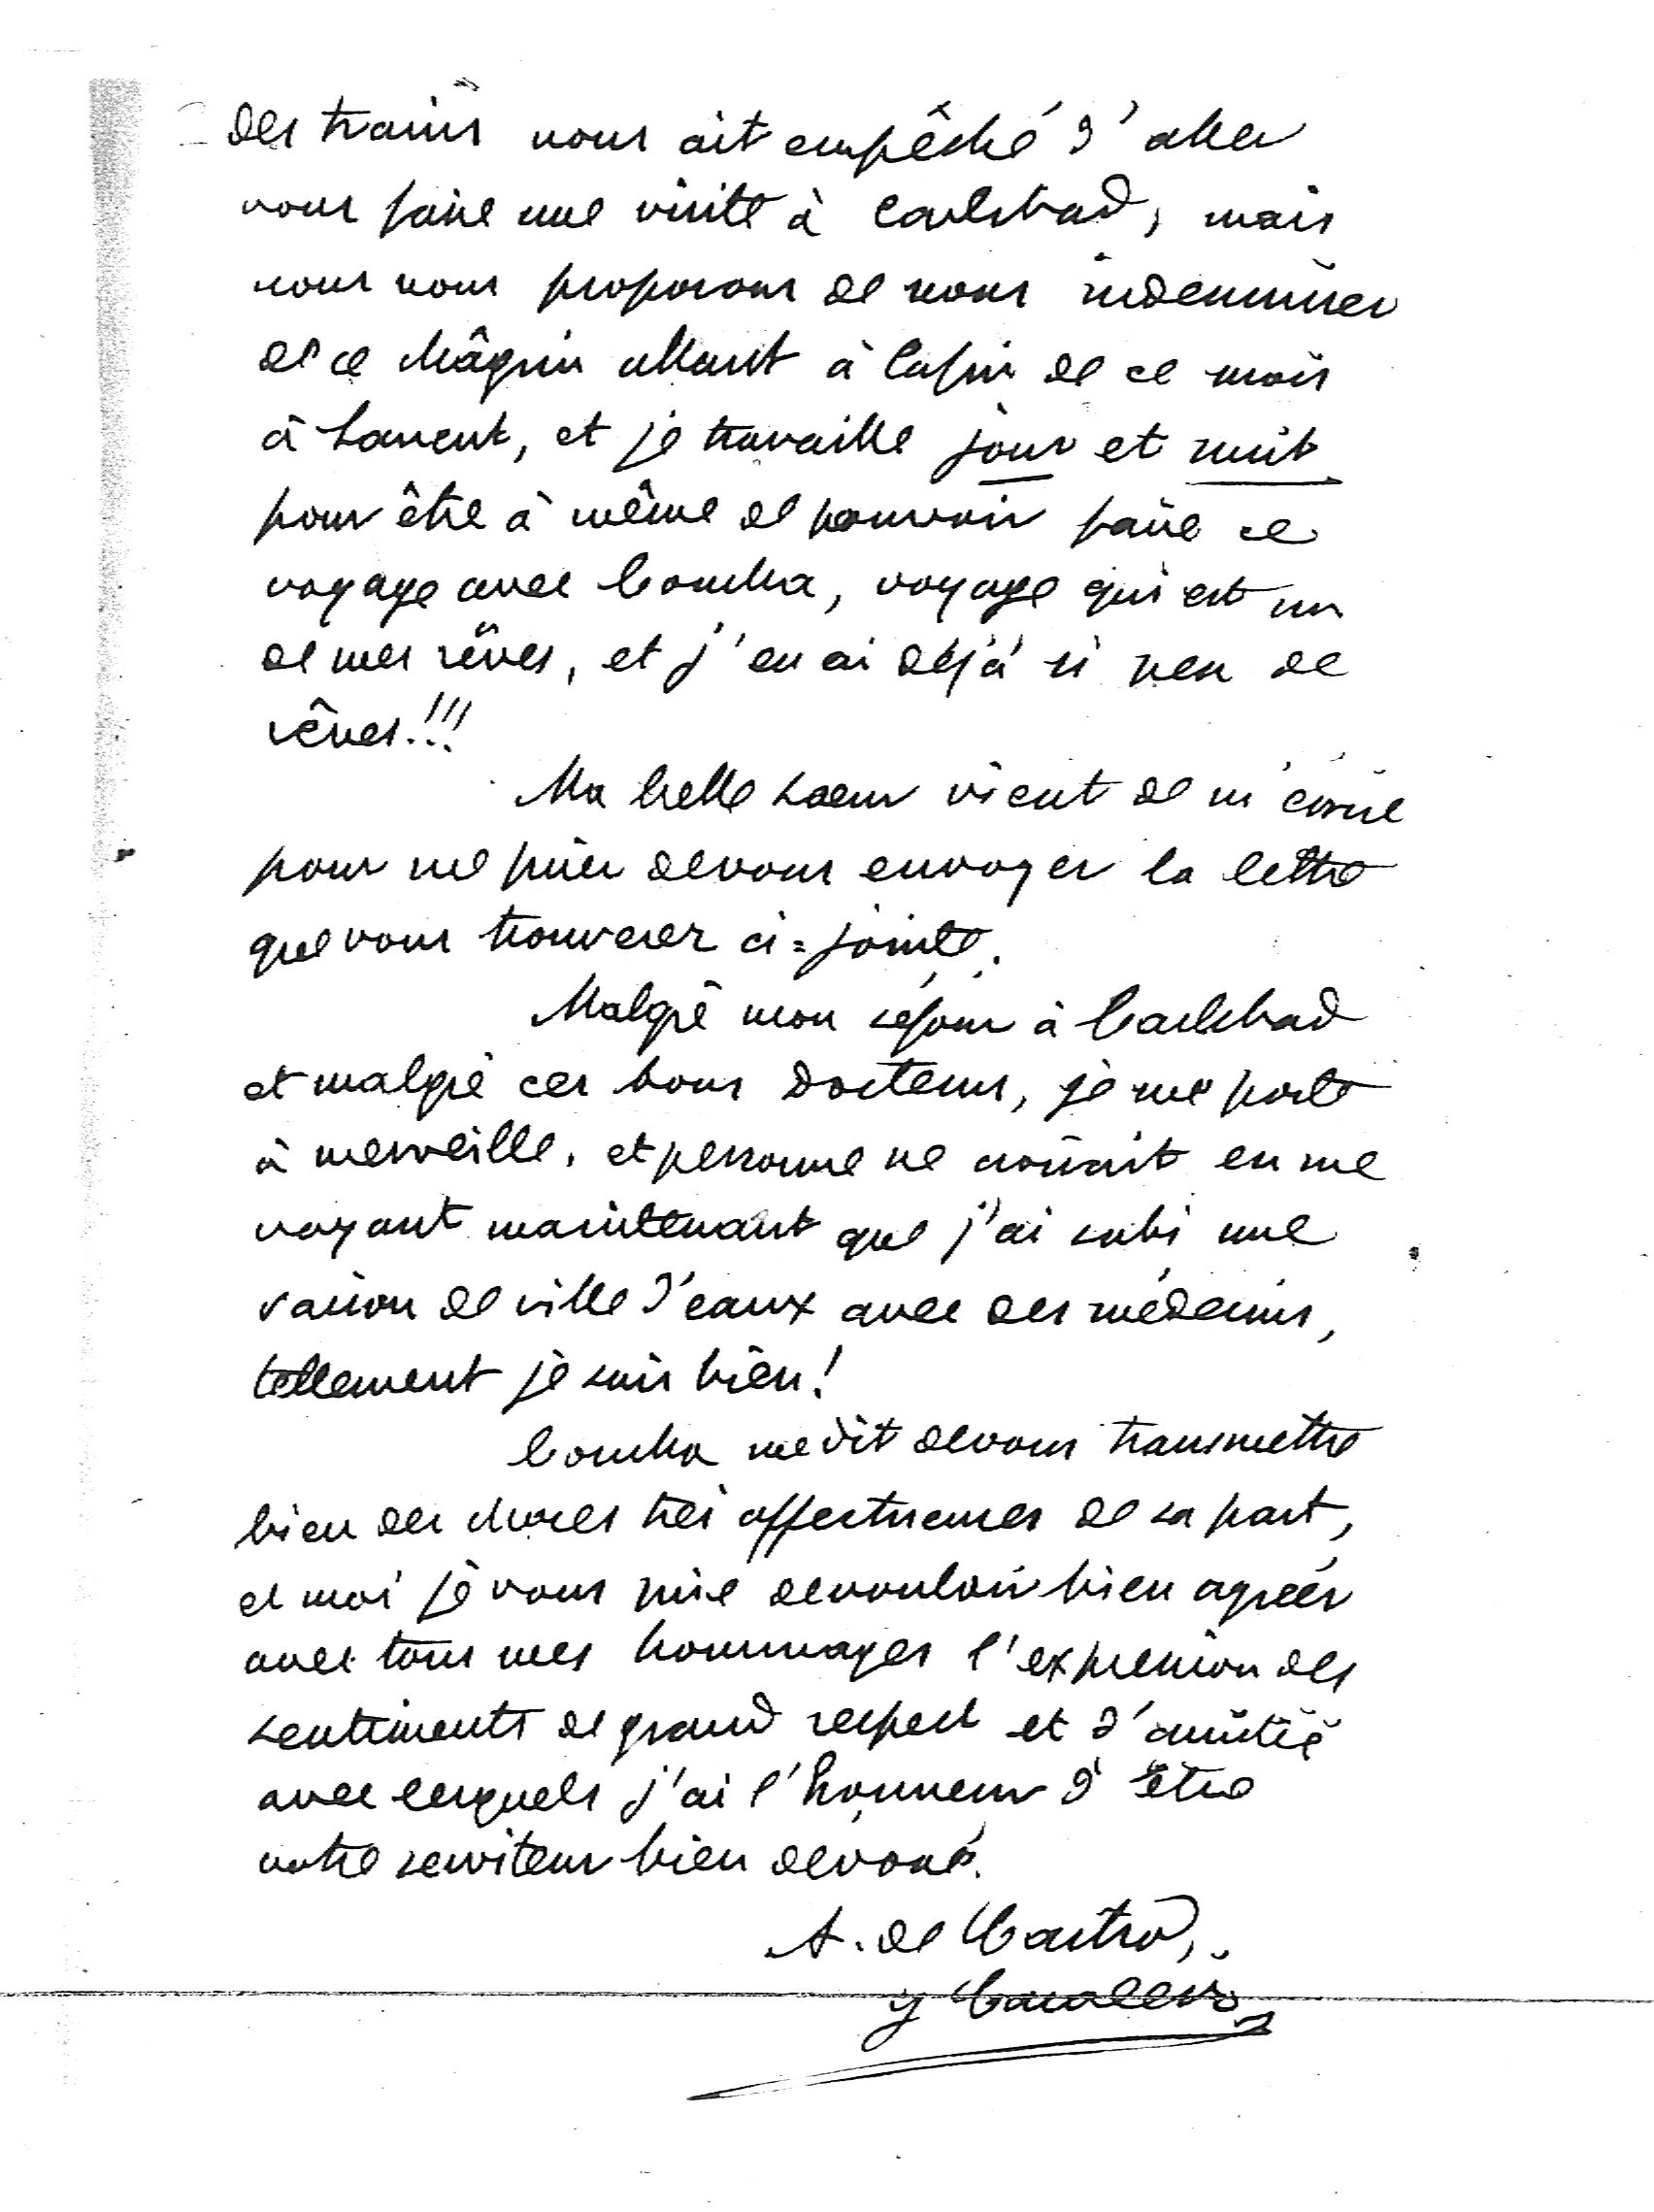 des trains nous ait empêché d'aller
vous faire une visite à Carlsbad, mais
nous nous proposons de nous indemniser
de ce châgrin allant à la fin de ce mois
à Lancut, et je travaille jour et nuit
pour être à même de pouvoir faire ce
voyage avec Concha, voyage qui est un
de mes rêves, et j'en ai déjà si peu de
rêves!!!
Ma belle soeur vient de m'écrire
pour me prier de vous envoyer la lettre
que vous trouverez ci=jointe.
Malgré mon séjour à Carlsbad
et malgré ces bons docteurs, je me porte
à merveille, et personne ne croirait en me
voyant maintenant que j'ai subi une
saison de ville d'eaux avec des médecins,
tellement je suis bien!
Concha me dit de vous transmettre
bien des choses très affectueuses de sa part,
et moi je vous prie de vouloir bien agréer
avec tous mes hommages l'expression des
sentiments de grand respect et d'amitié
avec lesquels j'ai l'honneur d'être
votre serviteur bien dévoué.
A. de Castro,
y